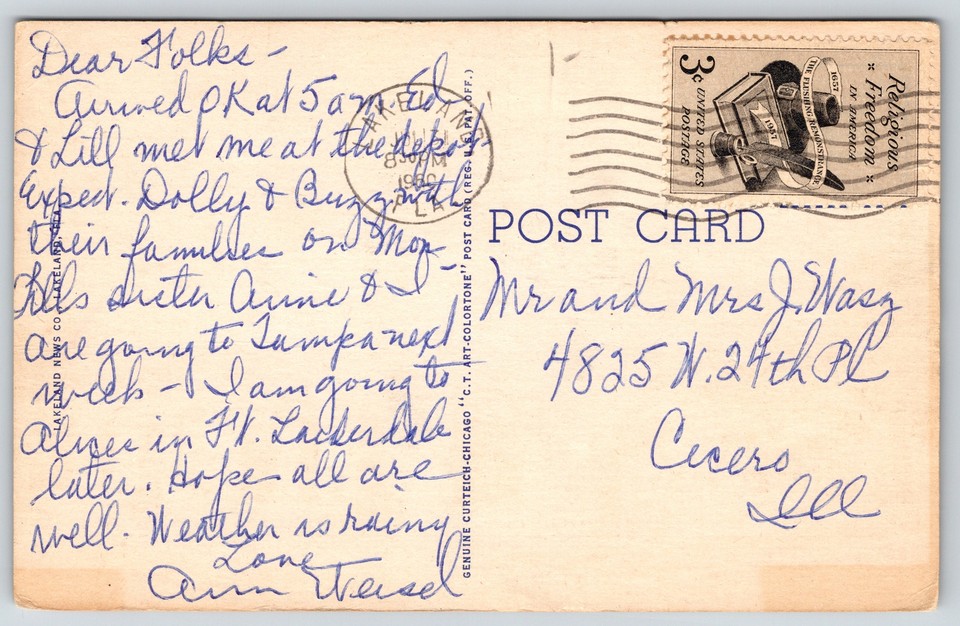 Dear Folks -
Arrived OK at 5 am. Ed
& Lill met me at the depot
Expect. Dolly & Buzz with
their families on Mon-
Lills sister Annie & I
are going to Tampa next
week - I am going to
Alices in Ft. Lauderdale
later. Hope all are
well. Weather is rainy
Love
Ann
LAKELAND NEWS CO., LAKELAND, FLA.
GENUINE CURTEICH-CHICAGO "C.T. ART-COLORTONE" POST CARD (REG. U.S. PAT. OFF.)
LAKELAND
PM
1960
FLA.
3c
UNITED STATES
POSTAGE
1657
THE FLUSHING REMONSTRANCE
1957
Religious
Freedom
IN AMERICA
POST CARD
Mr and Mrs J. Wasz
4825 W. 24th Pl
Cicero
Ill